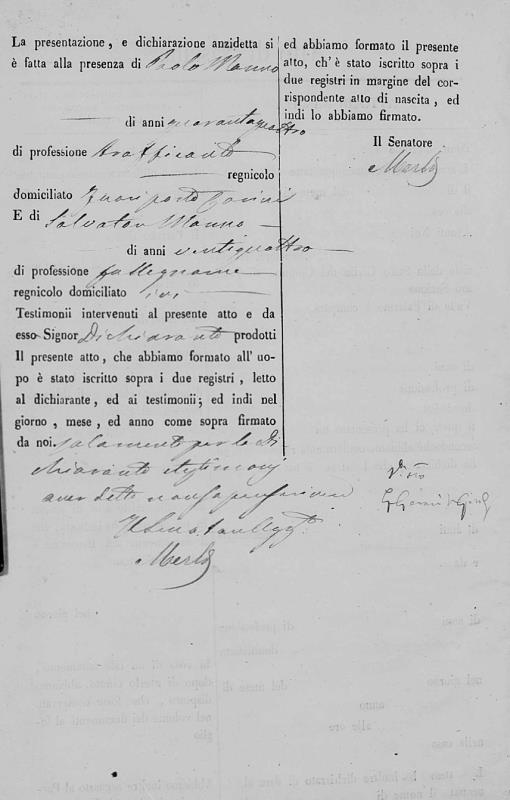 La presentazione, e dichiarazione anzidetta si
è fatta alla presenza di Paolo Manno
di anni quarantaquattro
di professione trafficante
regnicolo
domiciliato fuori porto
E di
Salvatore Manno
di anni ventiquattro
di professione fallegname
regnicolo domiciliato ivi
Testimonii intervenuti al presente atto e da
esso Signor Dichiarante prodotti
Il presente atto, che abbiamo formato all' uo-
po è stato iscritto sopra i due registri, letto
al dichiarante, ed ai testimonii; ed indi nel
giorno, mese, ed anno come sopra firmato
da noi. solamente per lo di-
chiarante e testimonj
aver detto non sapere scrivere
Il
Merlo
ed abbiamo formato il presente
atto, ch' è stato iscritto sopra i
due registri in margine del cor-
rispondente atto di nascita, ed
indi lo abbiamo firmato.
Il Senatore
Merlo